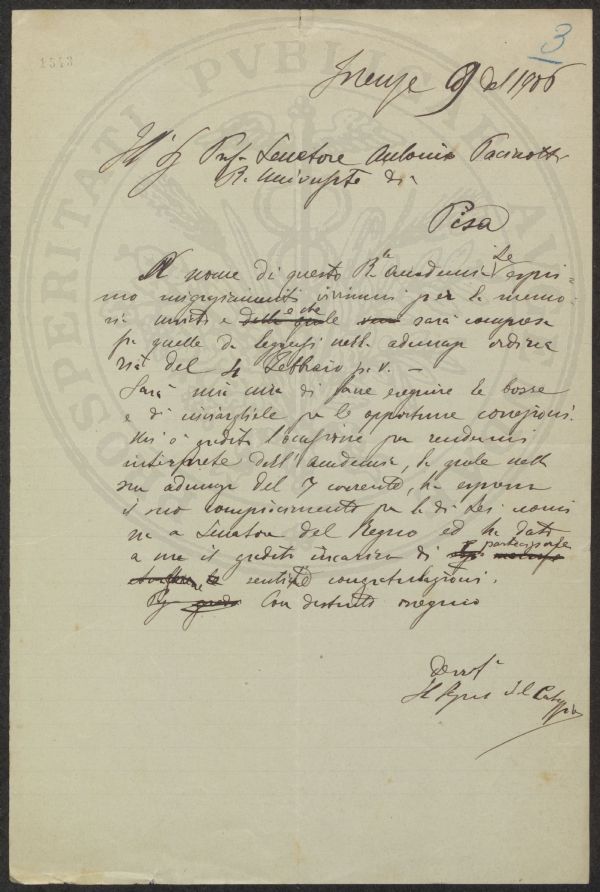 1543
3
Firenze 9 del 1906
Ill. Sig. Prof. Senatore Antonio Pacinotti
R. Università di
Pisa
A nome di questa R. Accademia Le espri-
mo ringraziamenti vivissimi per la memo-
ria inviata e che sarà compresa
fra quelle da leggersi nella adunanza ordina
ria del 4 Febbraio p. v. —
Sarà mia cura di fare eseguire le bozze
e di inviargliele per le opportune correzioni.
Mi è gradita l'occasione per rendermi
interprete dell'Accademia, la quale nella
sua adunanza del 7 corrente, ha espresso
il suo compiacimento per la di Lei nomi
na a Senatore del Regno ed ha dato
a me il gradito incarico di participarle
le sentite congratulazioni.
Con distinto ossequio
Devot.
Il
OSPERITATI PVBLICAE AV